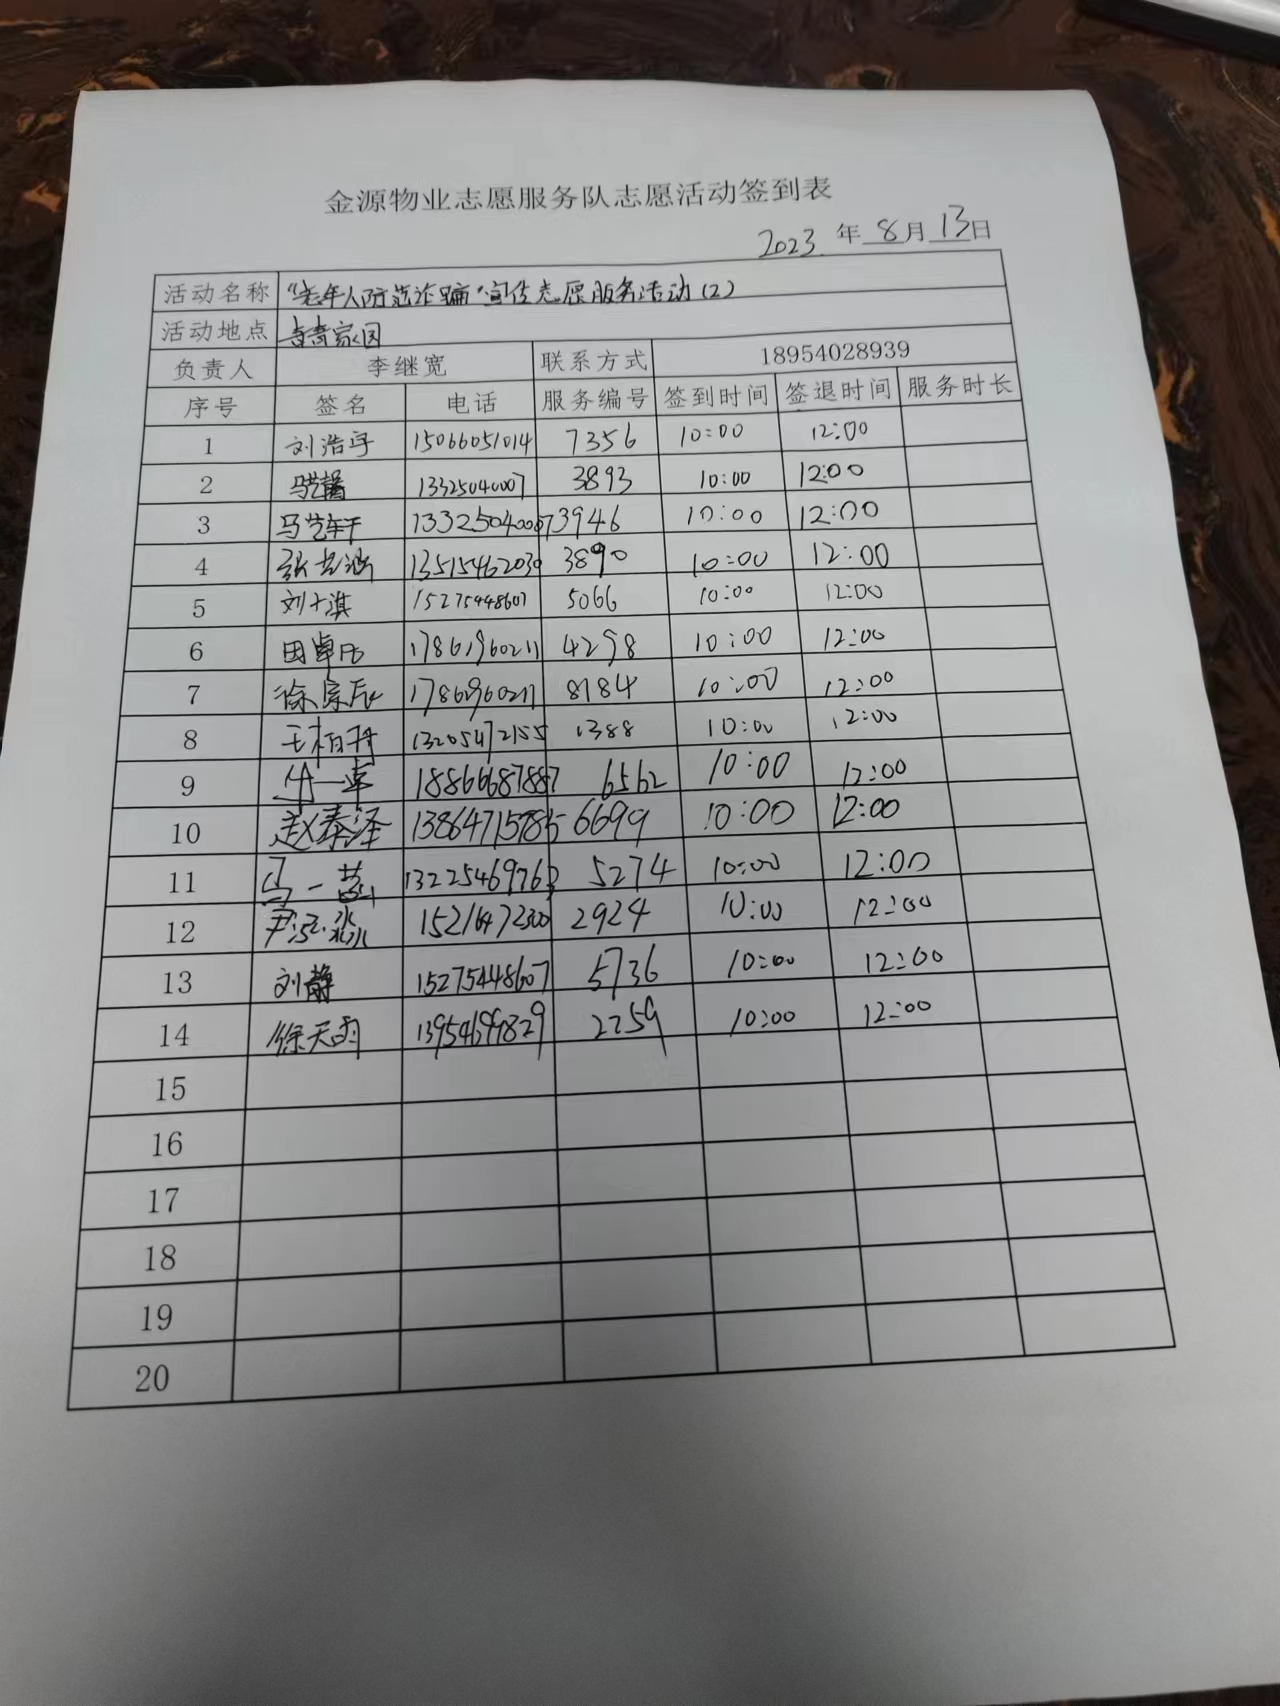 金源物业志愿服务队志愿活动签到表
2023 年 8 月 13 日
活动名称 "老年人防范诈骗"宣传志愿服务活动(2)
活动地点 杏吉家园
负责人 李继宽 联系方式 18954028939
序号 签名 电话 服务编号 签到时间 签退时间 服务时长
1 刘浩宇 15066051014 7356 10:00 12:00
2 13325040007 3893 10:00 12:00
3 13325040007 3946 10:00 12:00
4 张艺涵 13515462030 3890 10:00 12:00
5 刘十淇 15275448607 5066 10:00 12:00
6 17861960211 4298 10:00 12:00
7 徐宸辰 17861960211 8184 10:00 12:00
8 王柏 13205472155 1388 10:00 12:00
9 牛一卓 18866687887 6562 10:00 12:00
10 赵泰泽 13864715785 6699 10:00 12:00
11 马一 13225469763 5274 10:00 12:00
12 尹 15216472300 2924 10:00 12:00
13 刘静 15275448607 5736 10:00 12:00
14 徐天雨 13954699829 2259 10:00 12:00
15
16
17
18
19
20